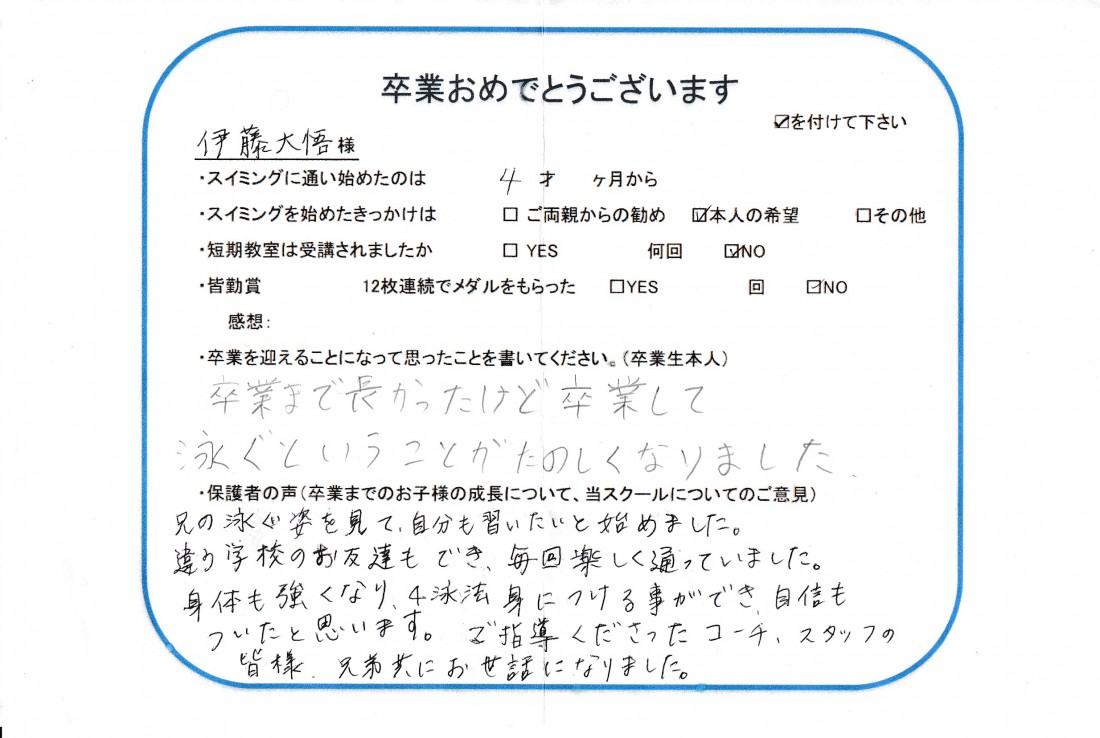 卒業おめでとうございます
☑を付けて下さい
伊藤大悟様
・スイミングに通い始めたのは 4 才 ヶ月から
・スイミングを始めたきっかけは □ ご両親からの勧め ☑本人の希望 □その他
・短期教室は受講されましたか □ YES 何回 ☑NO
・皆勤賞 12枚連続でメダルをもらった □YES 回 ☑NO
感想:
・卒業を迎えることになって思ったことを書いてください。(卒業生本人)
卒業まで長かったけど卒業して
泳ぐということがたのしくなりました。
・保護者の声(卒業までのお子様の成長について、当スクールについてのご意見)
兄の泳ぐ姿を見て、自分も習いたいと始めました。
違う学校のお友達もでき、毎回楽しく通っていました。
身体も強くなり、4泳法身につける事ができ、自信も
ついたと思います。ご指導くださったコーチ、スタッフの
皆様、兄弟共にお世話になりました。